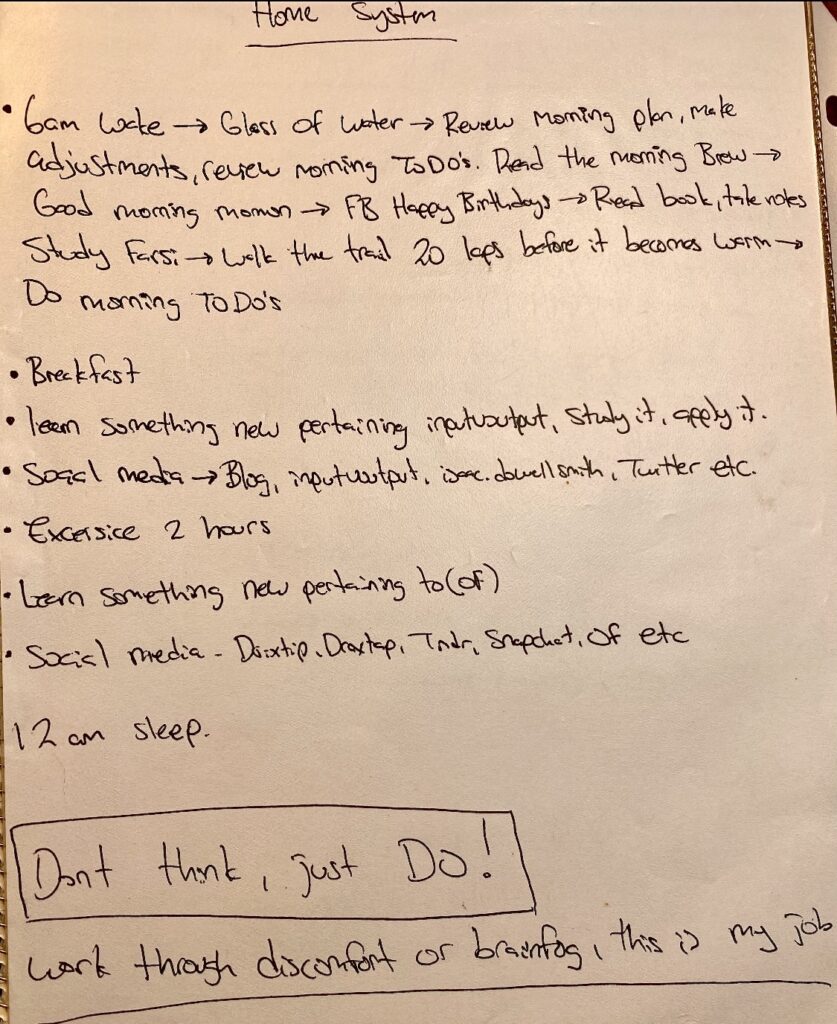 Home System
• 6am Wake → Glass of water → Review morning plan, make
adjustments, review morning ToDo's. Read the morning Brew →
Good morning momon → FB Happy Birthdays → Read book, take notes
Study Farsi → Walk the trail 20 laps before it becomes warm →
Do morning ToDo's
• Breakfast
• learn something new pertaining inputoutput, study it, apply it.
• Social media → Blog, inputoutput, Twitter etc.
• Excersice 2 hours
• Learn something new pertaining to (OF)
• Social media - Tndr, Snapchat, OF etc
12 am sleep.
Dont think, just DO!
work through discomfort or brainfog, this is my job